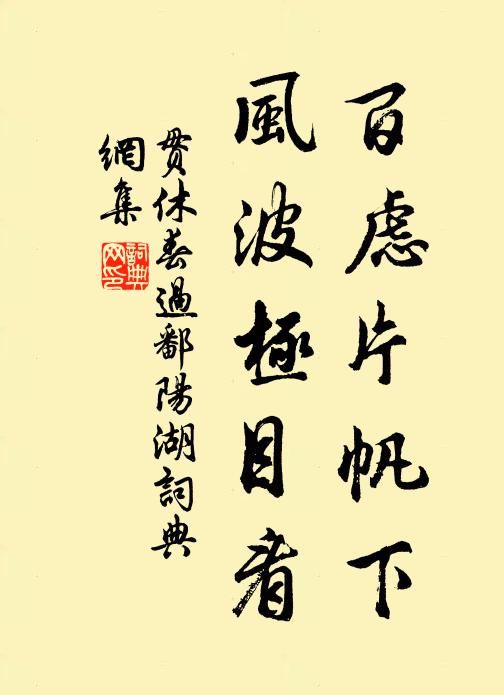 百慮片帆下
風波極目看
貫休春過鄱陽湖詞典
網集
詞典
网印